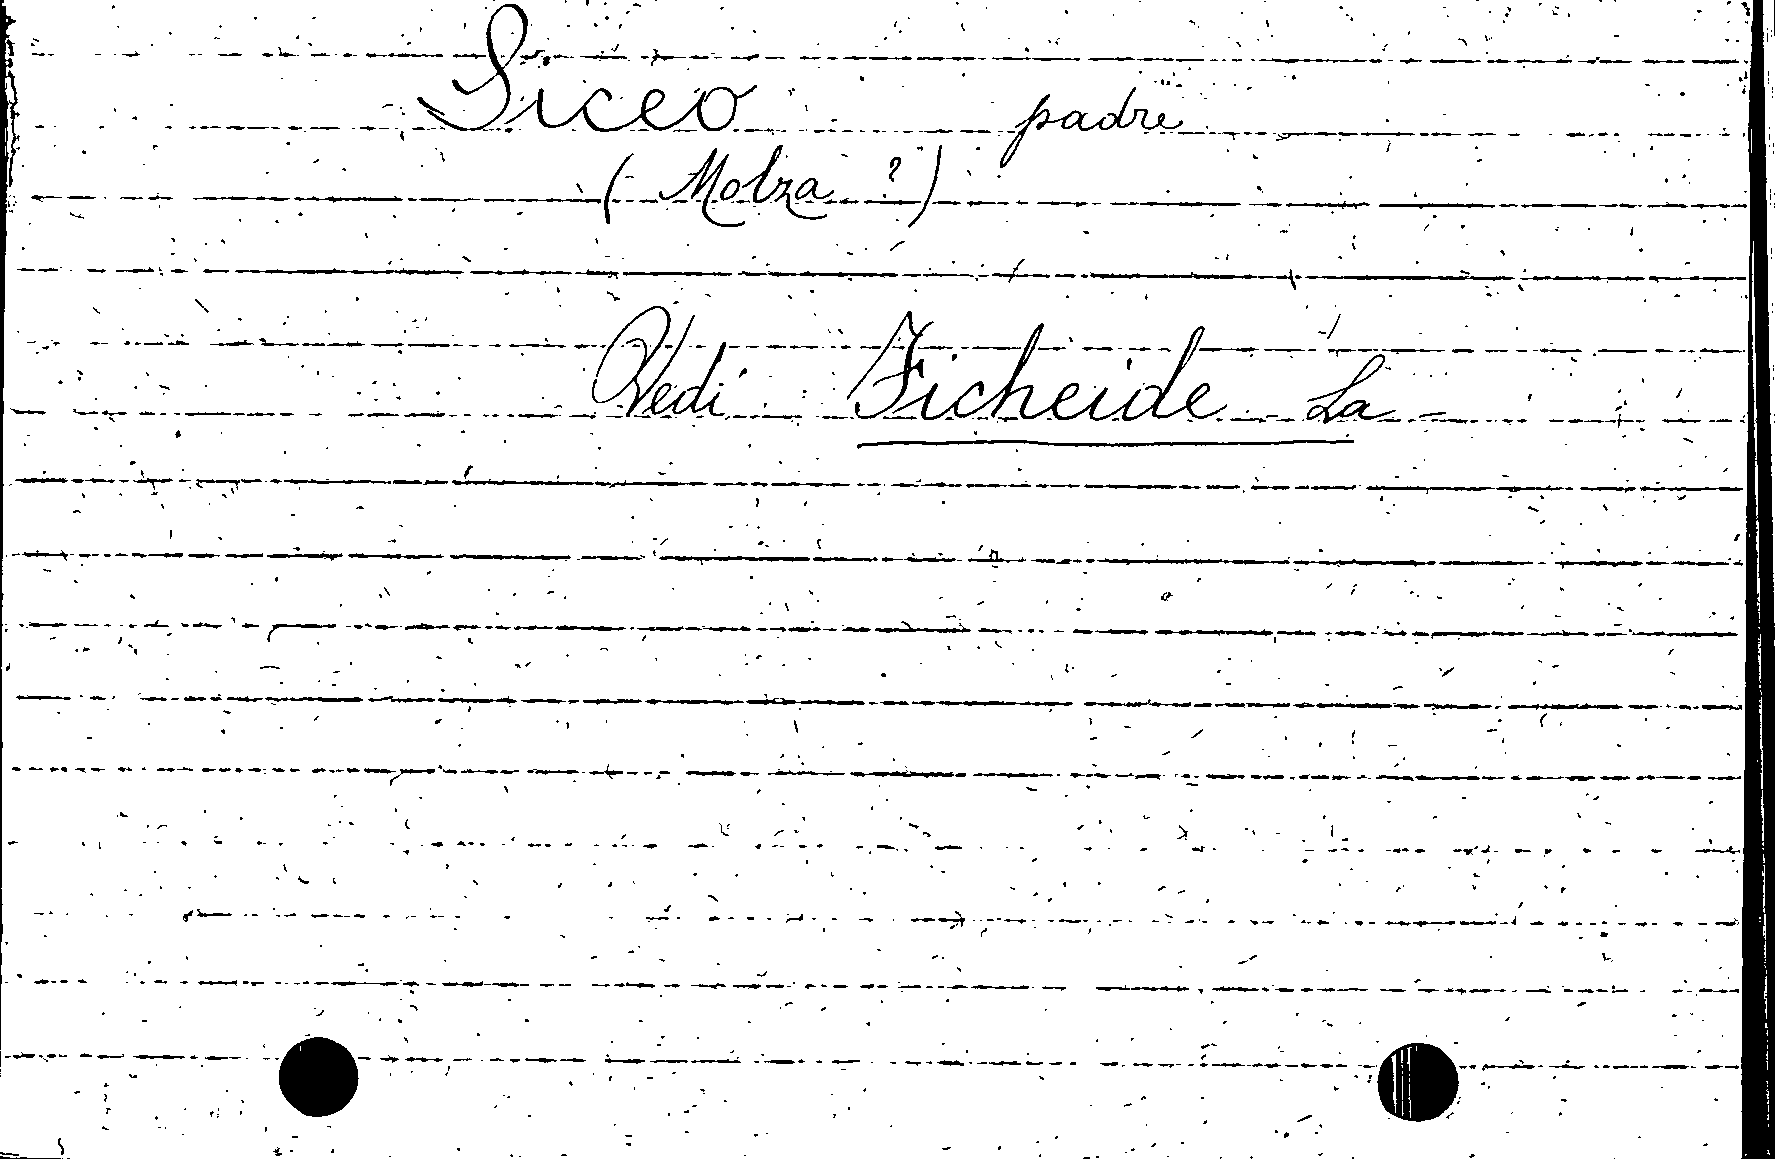 Siceo padre
( Molza ? )
Vedi Ficheide La -